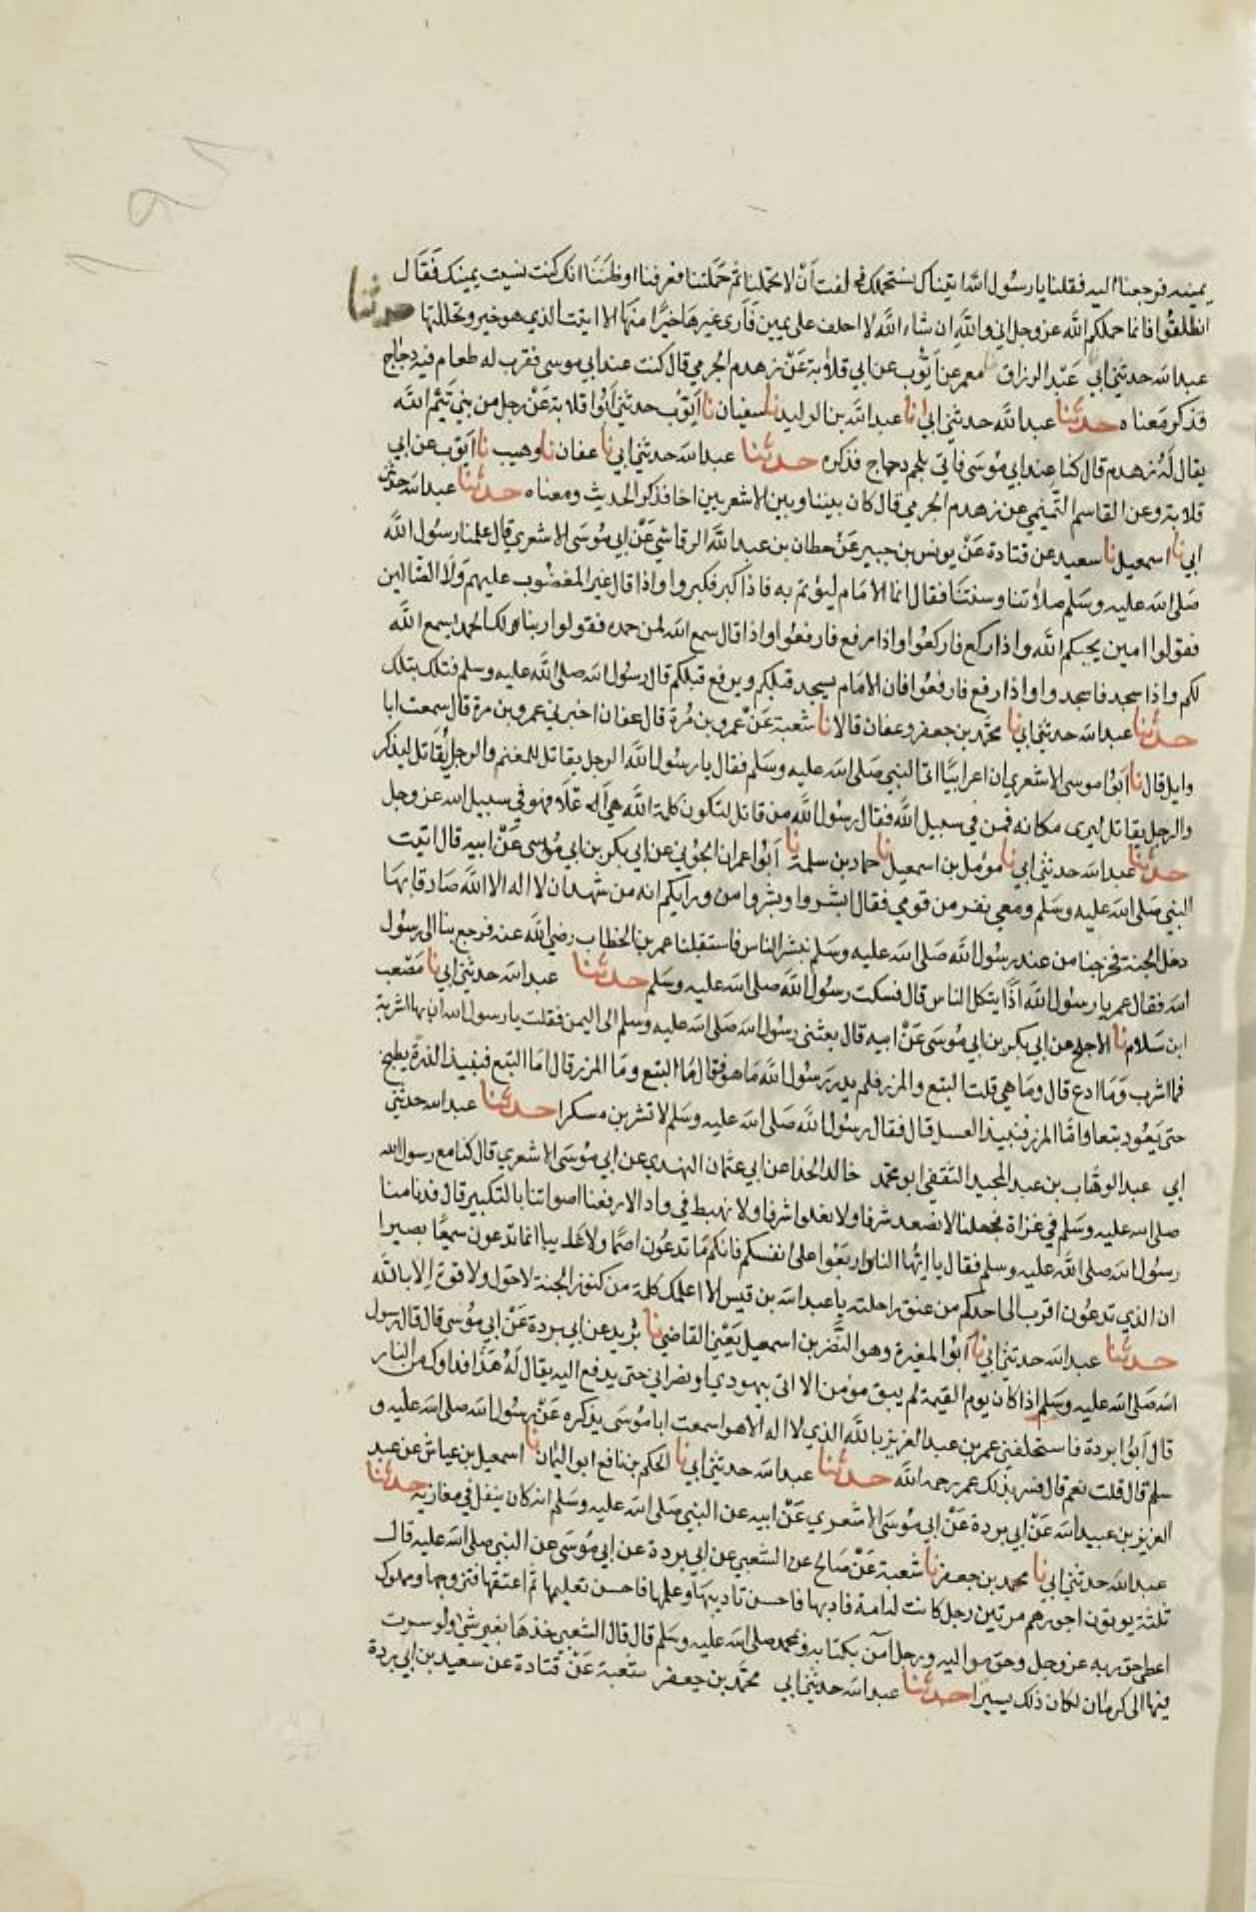 يمينه فرجعنا اليه فقلنا يا رسول الله اتيناك نستحملك فحلفت أن لا تحملنا ثم حملتنا فعرفنا او ظننا انك كنت نسيت يمينك فقال
انطلقوا فانما حملكم الله عز وجل اني والله ان شاء الله لا احلف على يمين فأرى غيرها خيرا منها الا اتيت الذي هو خير وتحللتها حدثنا
عبد الله حدثني ابي عبد الرزاق معمر عن ايوب عن ابي قلابة عن زهدم الجرمي قال كنت عند ابي موسى فقرب له طعام فيه دجاج
فذكر معناه حدثنا عبد الله حدثني ابي نا عبد الله بن الوليد نا سفيان نا ايوب حدثني ابو قلابة عن رجل من بني تيم الله
يقال له زهدم قال كنا عند ابي موسى فاتي بلحم دجاج فذكره حدثنا عبد الله حدثني ابي نا عفان نا وهيب نا ايوب عن ابي
قلابة وعن القاسم التميمي عن زهدم الجرمي قال كان بيننا وبين الاشعريين اخا فذكر الحديث ومعناه حدثنا عبد الله حدثني
ابي نا اسمعيل نا سعيد عن قتادة عن يونس بن جبير عن حطان بن عبد الله الرقاشي عن ابي موسى الاشعري قال علمنا رسول الله
صلى الله عليه وسلم صلاتنا وسنتنا فقال انما الامام ليؤتم به فاذا كبر فكبروا واذا قال غير المغضوب عليهم ولا الضالين
فقولوا امين يجبكم الله واذا ركع فاركعوا واذا رفع فارفعوا واذا قال سمع الله لمن حمده فقولوا ربنا لك الحمد يسمع الله
لكم واذا سجد فاسجدوا واذا رفع فارفعوا فان الامام يسجد قبلكم ويرفع قبلكم قال رسول الله صلى الله عليه وسلم فتلك بتلك
حدثنا عبد الله حدثني ابي نا محمد بن جعفر وعفان قالا نا شعبة عن عمرو بن مرة قال عفان اخبرني عمرو بن مرة قال سمعت ابا
وايل قال نا ابو موسى الاشعري ان اعرابيا اتا النبي صلى الله عليه وسلم فقال يا رسول الله الرجل يقاتل للمغنم والرجل يقاتل ليذكر
والرجل يقاتل ليرى مكانه فمن في سبيل الله فقال رسول الله من قاتل لتكون كلمة الله هي العلا فهو في سبيل الله عز وجل
حدثنا عبد الله حدثني ابي نا مومل بن اسمعيل نا حماد بن سلمة نا ابو عمران الجوني عن ابي بكر بن ابي موسى عن ابيه قال اتيت
النبي صلى الله عليه وسلم ومعي نفر من قومي فقال ابشروا وبشروا من ورايكم انه من شهد ان لا اله الا الله صادقا بها
دخل الجنة فخرجنا من عند رسول الله صلى الله عليه وسلم نبشر الناس فاستقبلنا عمر بن الخطاب رضي الله عنه فرجع بنا الى رسول
الله فقال عمر يا رسول الله اذا يتكل الناس قال فسكت رسول الله صلى الله عليه وسلم حدثنا عبد الله حدثني ابي نا مصعب
ابن سلام نا الاجلح عن ابي بكر بن ابي موسى عن ابيه قال بعثني رسول الله صلى الله عليه وسلم الى اليمن فقلت يا رسول الله ان بها اشربة
فما اشرب وما ادع قال وما هي قلت البتع والمزر فلم يدر رسول الله ما هو فقال ما البتع وما المزر قال اما البتع فنبيذ الذرة يطبخ
حتى يعود بتعا واما المزر فنبيذ العسل قال فقال رسول الله صلى الله عليه وسلم لا تشربن مسكرا حدثنا عبد الله حدثني
ابي عبد الوهاب بن عبد المجيد الثقفي ابو محمد خالد الحذا عن ابي عثمان النهدي عن ابي موسى الاشعري قال كنا مع رسول الله
صلى الله عليه وسلم في غزاة فجعلنا لا نصعد شرفا ولا نعلوا شرفا ولا نهبط في واد الا رفعنا اصواتنا بالتكبير قال فدنا منا
رسول الله صلى الله عليه وسلم فقال يا ايها الناس اربعوا على انفسكم فانكم ما تدعون اصما ولا غايبا انما تدعون سميعا بصيرا
ان الذي تدعون اقرب الى احدكم من عنق راحلته يا عبد الله بن قيس الا اعلمك كلمة من كنوز الجنة لا حول ولا قوة الا بالله
حدثنا عبد الله حدثني ابي نا ابو المغيرة وهو النضر بن اسمعيل يعني القاضي نا بريد عن ابي بردة عن ابي موسى قال قال رسول
الله صلى الله عليه وسلم اذا كان يوم القيمة لم يبق مؤمن الا اتى بيهودي او نصراني حتى يدفع اليه يقال له هذا فداوك من النار
قال ابو بردة فاستحلفني عمر بن عبد العزيز بالله الذي لا اله الا هو اسمعت ابا موسى يذكره عن رسول الله صلى الله عليه و
سلم قال قلت نعم قال فسر بذلك عمر رحمه الله حدثنا عبد الله حدثني ابي نا الحكم بن نافع ابو اليمان نا اسمعيل بن عياش عن عبد
العزيز بن عبيد الله عن ابي بردة عن ابي موسى الاشعري عن ابيه عن النبي صلى الله عليه وسلم انه كان ينفل في مغازيه حدثنا
عبد الله حدثني ابي نا محمد بن جعفر نا شعبة عن صالح عن الشعبي عن ابي بردة عن ابي موسى عن النبي صلى الله عليه قال
ثلثة يوتون اجورهم مرتين رجل كانت له امة فادبها فاحسن تاديبها وعلمها فاحسن تعليمها ثم اعتقها فتزوجها ومملوك
اعطى حق ربه عز وجل وحق مواليه ورجل آمن بكتابه وبمحمد صلى الله عليه وسلم قال قال الشعبي خذها بغير شي ولو سرت
فيها الى كرمان لكان ذلك يسيرا حدثنا عبد الله حدثني ابي محمد بن جعفر شعبة عن قتادة عن سعيد بن ابي بردة